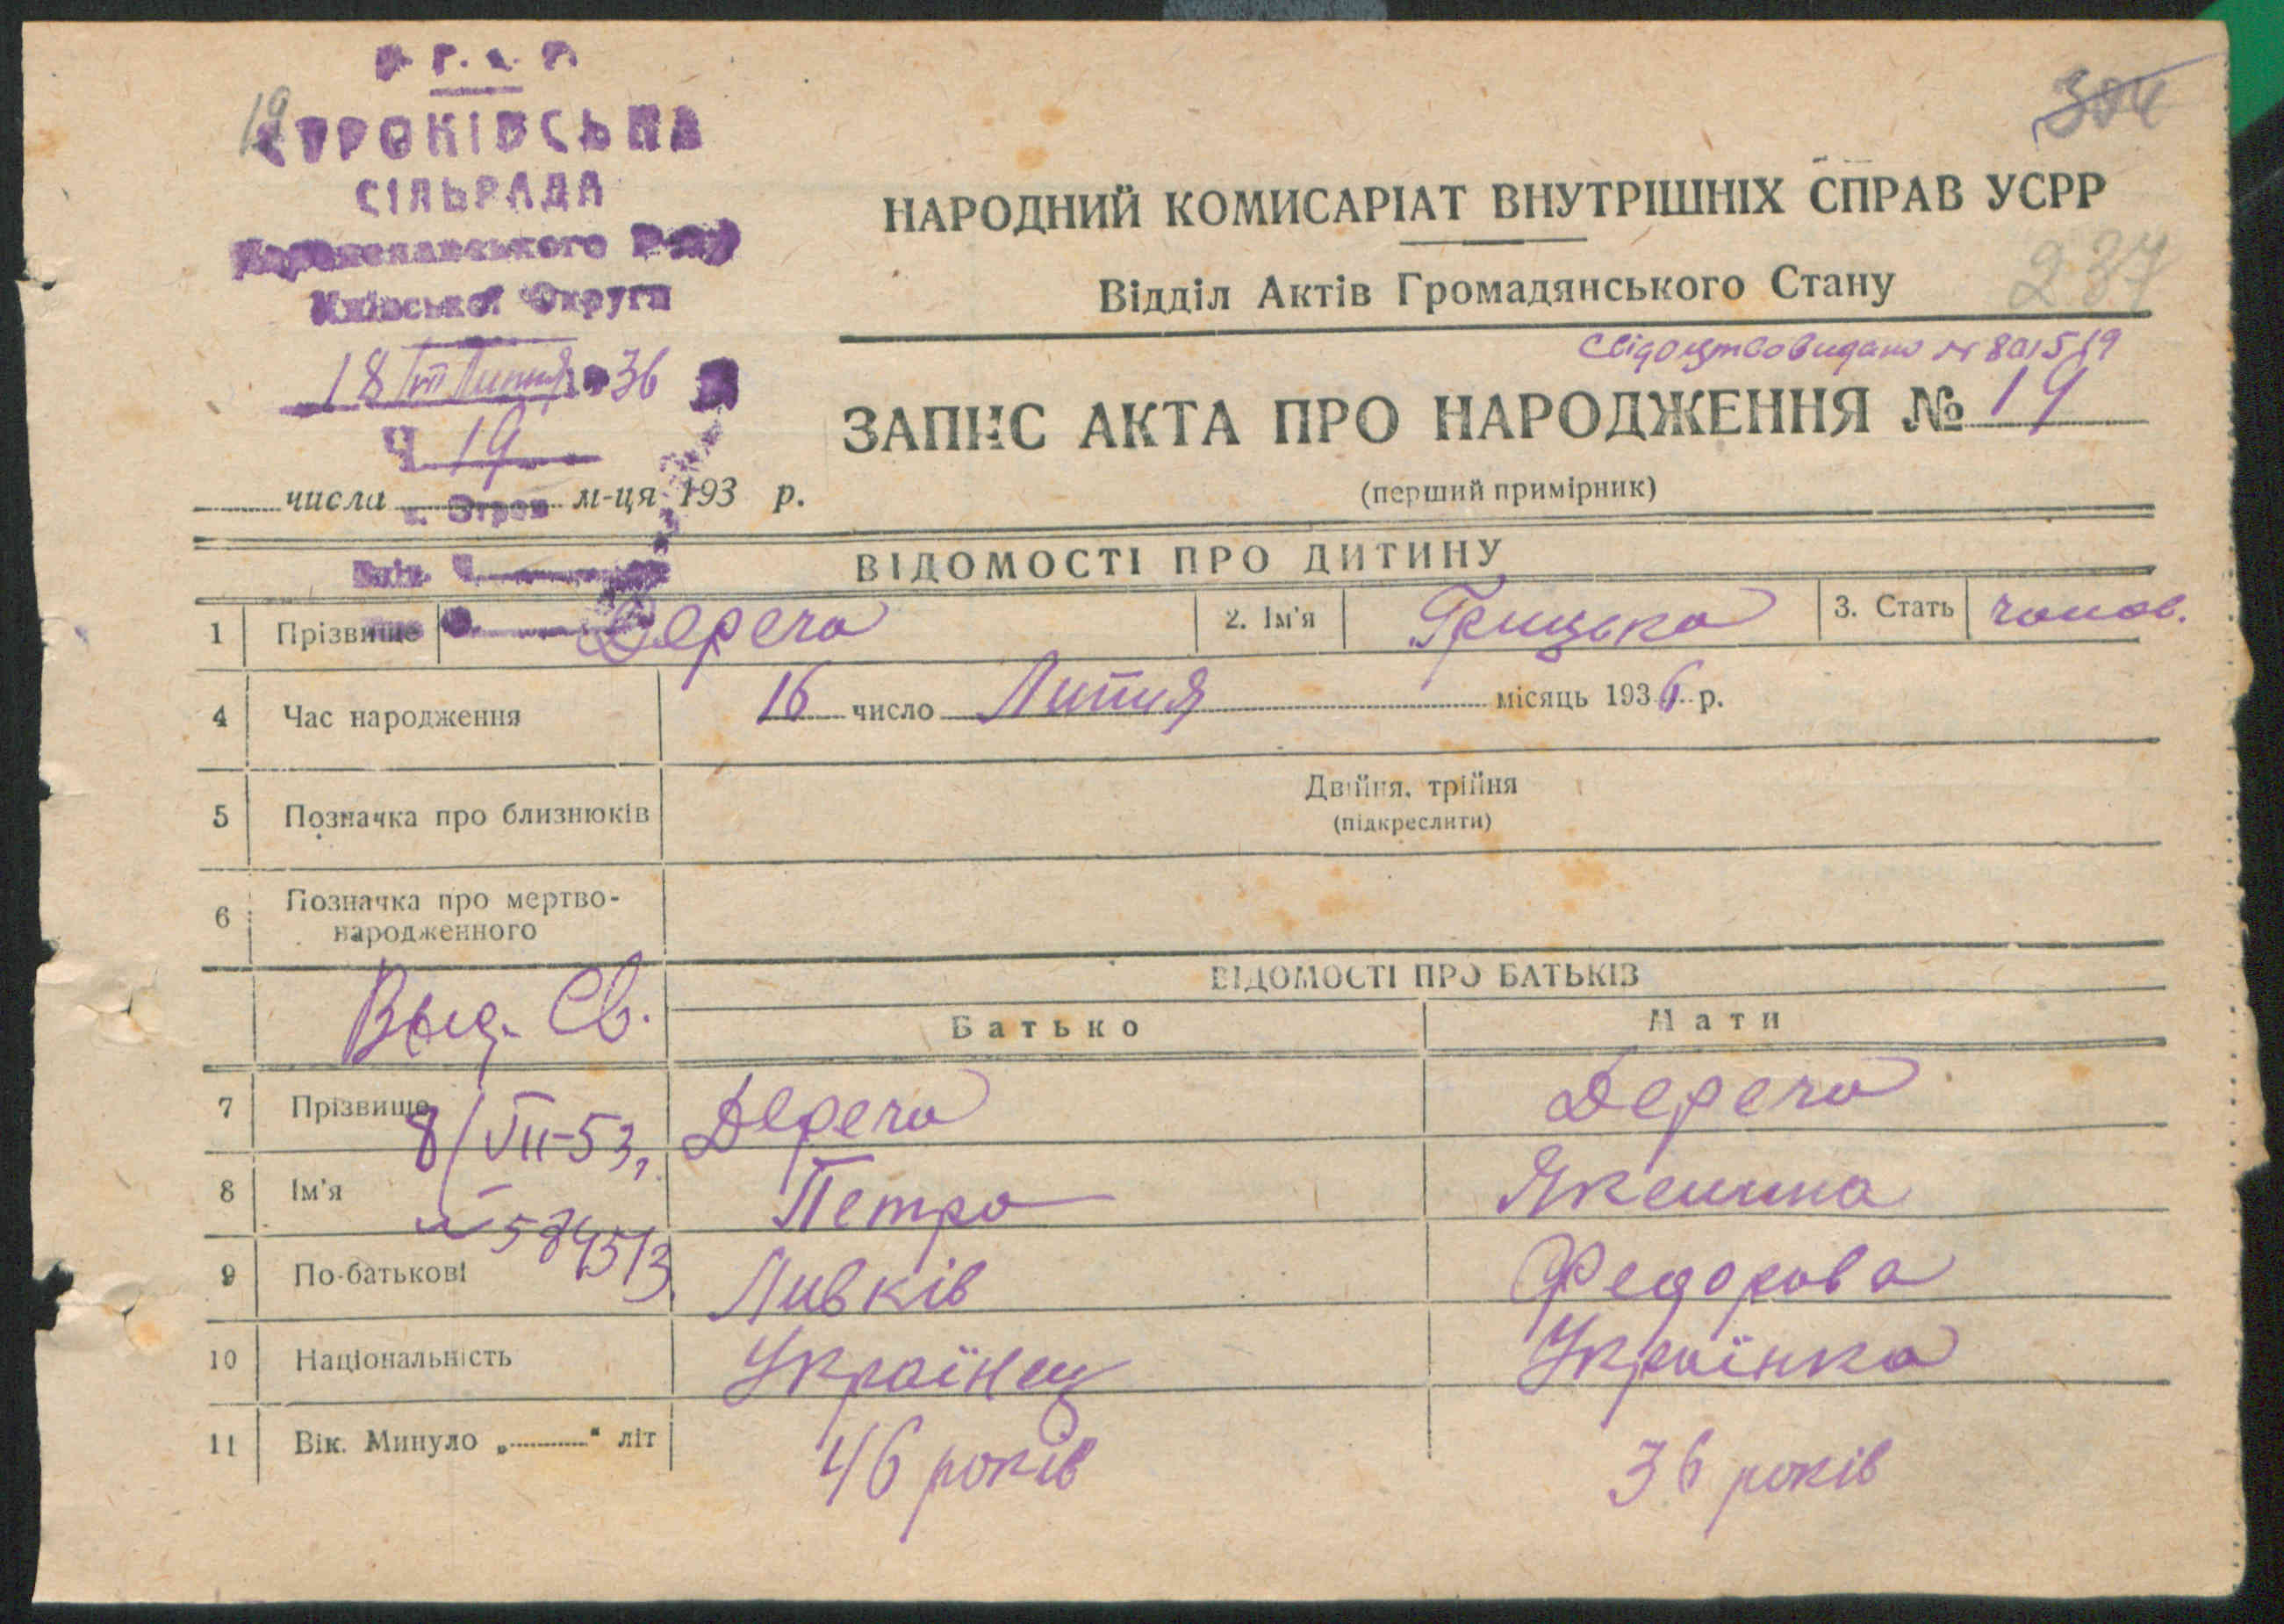 304
19
СТРОКІВСЬКА
СІЛЬРАДА
Київської Округи
18/VII Липня 1936
Ч. 19
числа м-ця 193 р.
НАРОДНИЙ КОМИСАРІАТ ВНУТРІШНІХ СПРАВ УСРР
237
Відділ Актів Громадянського Стану
Свідоцтво видано № 801519
ЗАПИС АКТА ПРО НАРОДЖЕННЯ № 19
(перший примірник)
ВІДОМОСТІ ПРО ДИТИНУ
1 Прізвище Дереча 2. Ім'я Грицько 3. Стать чолов.
4 Час народження 16 число Липня місяць 1936 р.
5 Позначка про близнюків Двійня, трійня
(підкреслити)
6 Позначка про мертво-
народженного
ВІДОМОСТІ ПРО БАТЬКІВ
Выд. Св.
Батько Мати
7 Прізвище Дереча Дереча
8/VII-53,
8 Ім'я Петро Якелина
№ 584513
9 По-батькові Ливків Федорова
10 Національність Українец Українка
11 Вік. Минуло „ “ літ 46 років 36 років